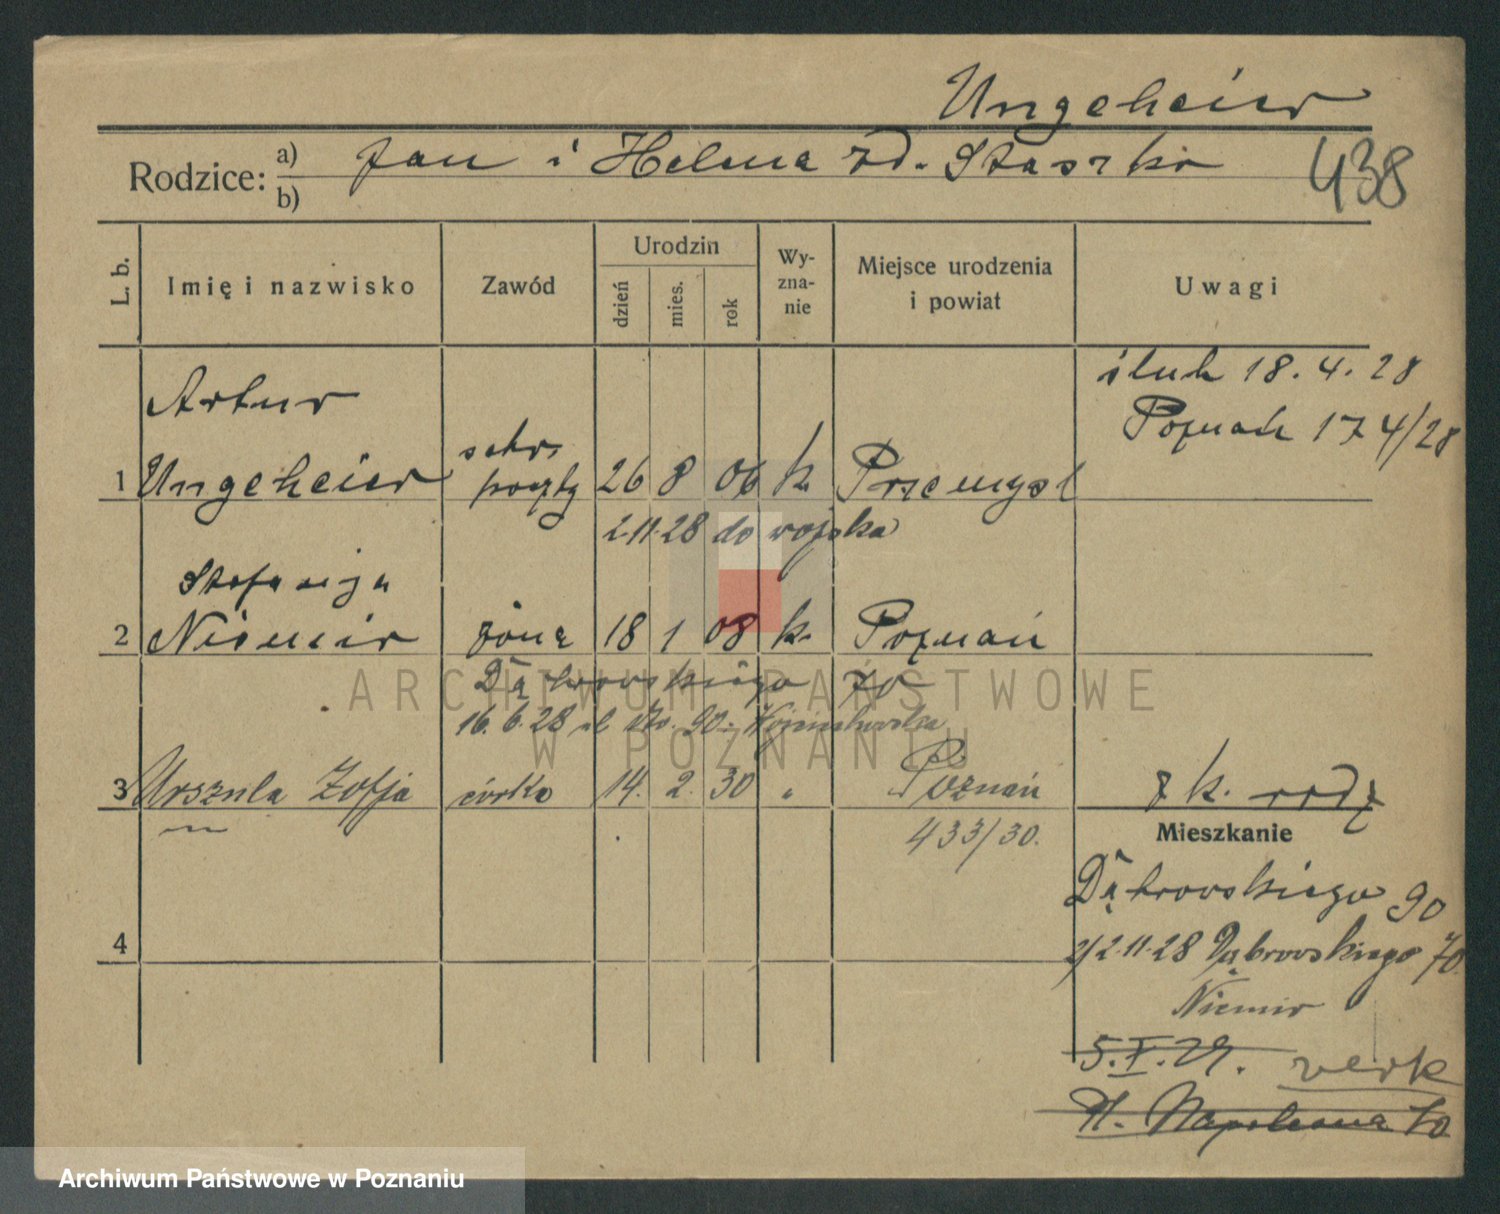 Ungeheier
Rodzice: a) Jan i Helena zd. Staszko
b)
438
L. b.
Imię i nazwisko
Zawód
Urodzin
dzień
mies.
rok
Wy-
zna-
nie
Miejsce urodzenia
i powiat
Uwagi
ślub 18.4.28
Poznań 174/28
Artur
1 Ungeheier sekr. poczty 26 8 06 k. Przemyśl
2.11.28 do wojska
Stefanija
2 Niemir żona 18 1 08 k. Poznań
Dąbrowskiego 70
16.6.28 90
3 Urszula Zofja córka 14. 2. 30 " Poznań
433/30.
Mieszkanie
Dąbrowskiego 90
2/2.11.28 Dąbrowskiego 70
4
Niemir
5.X.29.
Pl. Napoleona
ARCHIWUM PAŃSTWOWE
W POZNANIU
Archiwum Państwowe w Poznaniu